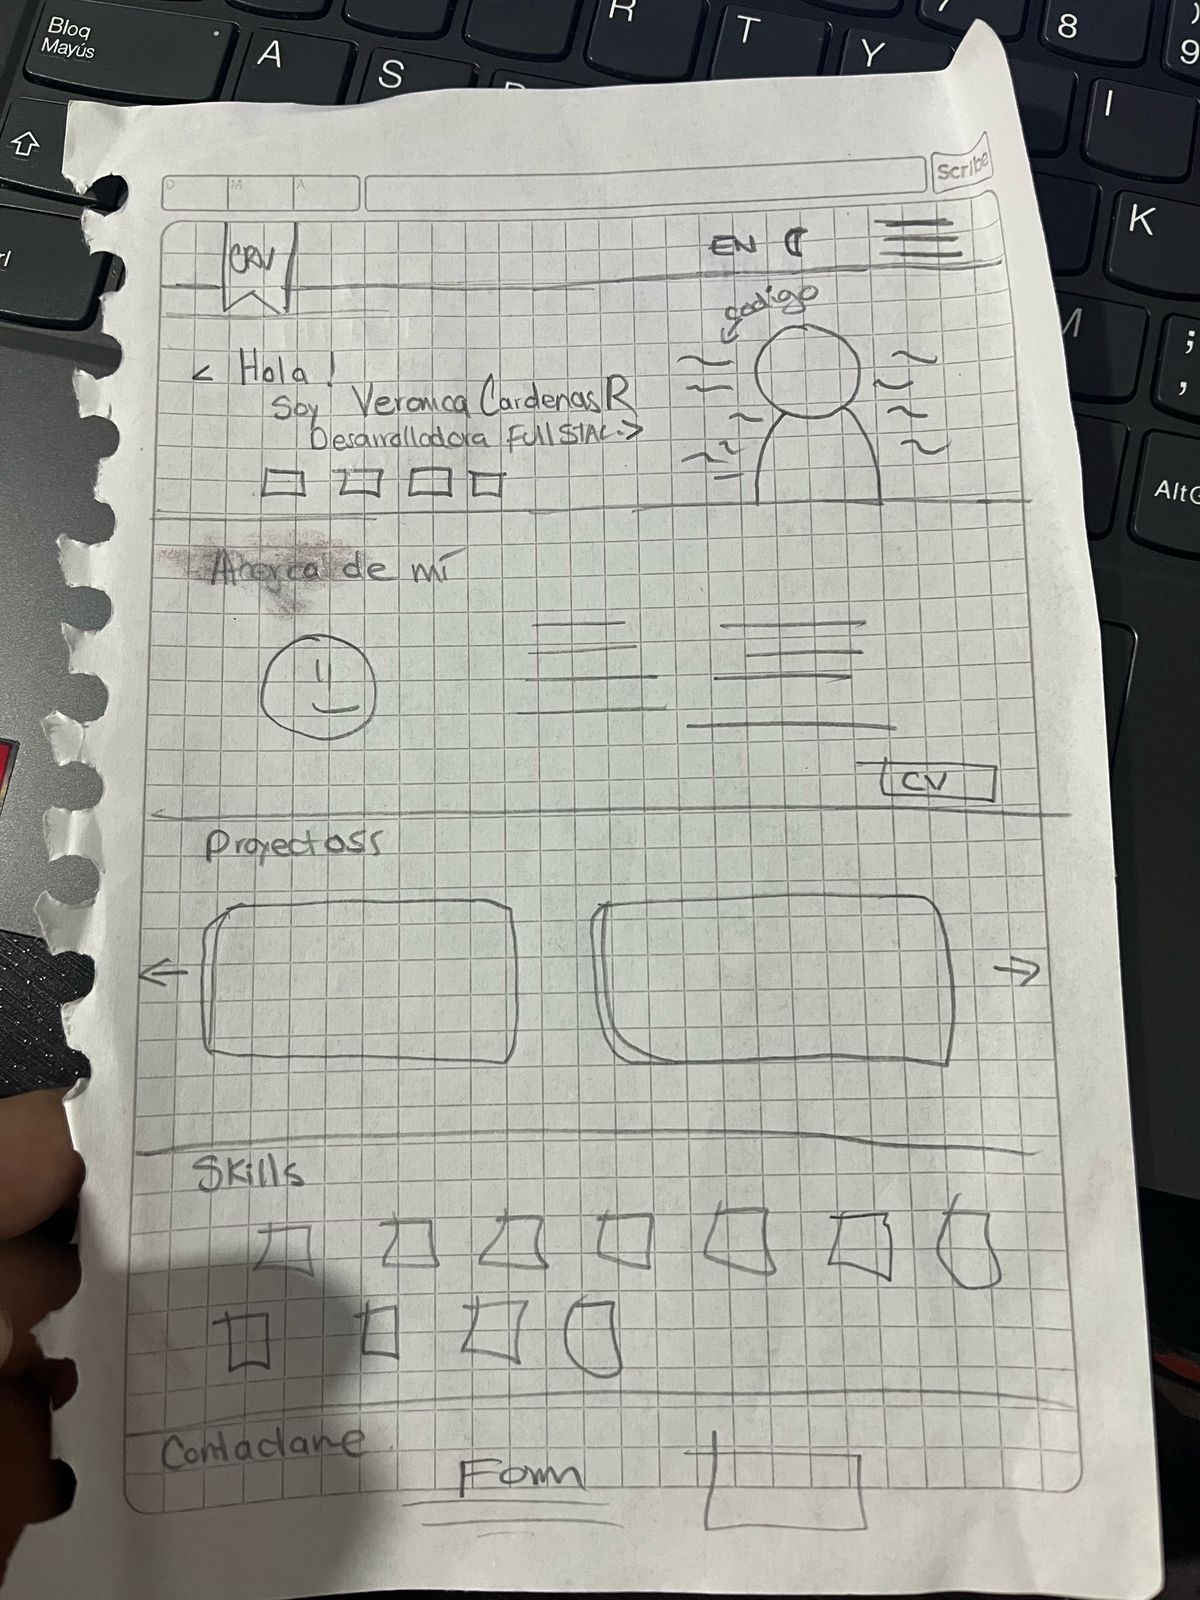 Bloq
Mayús
A
S
R
T
Y
7
8
)
9
I
K
M
;
,
AltG
rl
D
M
A
Scribe
CRV
EN
codigo
< Hola !
Soy Veronica Cardenas R
Desarrolladora Full STAC->
de mí
CV
Proyectoss
Skills
Contactame
Form